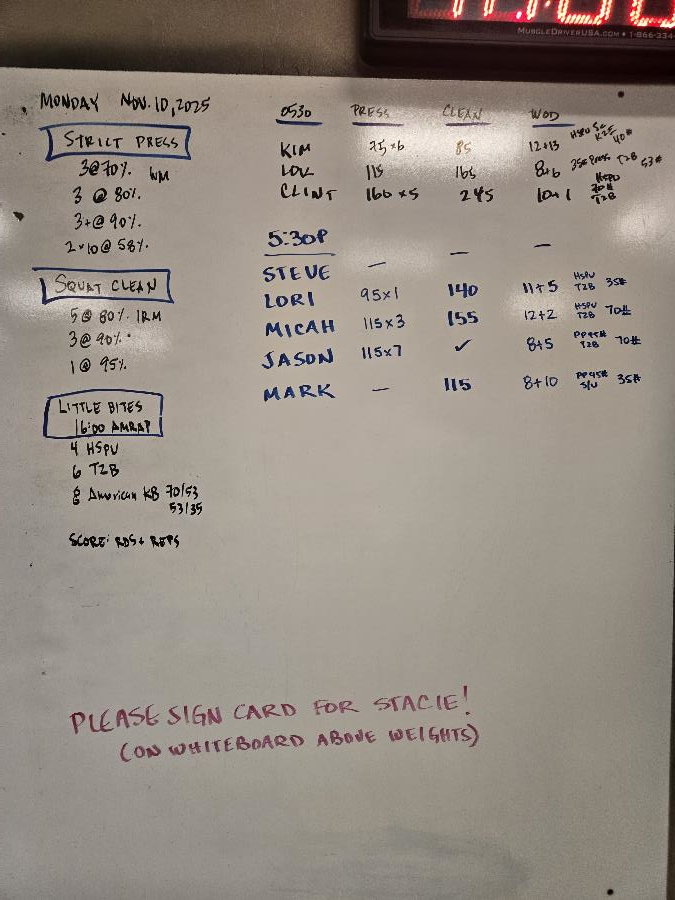 MUSCLEDRIVERUSA.COM • 1-866-334-
MONDAY NOV. 10, 2025
STRICT PRESS
3@70%. WM
3 @ 80%.
3+@ 90%.
2×10@ 58%.
SQUAT CLEAN
5@ 80% 1RM
3@ 90%.
1@ 95%.
LITTLE BITES
16:00 AMRAP
4 HSPU
6 T2B
8 American KB 70/53
53/35
SCORE: RDS + REPS
0530 PRESS CLEAN WOD
KIM 75×6 85 12+13 HSPU K2E 40#
115 165 8+6 35# Press T2B 53#
CLINT 160×5 245 10+1 HSPU 70# T2B
5:30P
STEVE — — —
LORI 95×1 140 11+5 HSPU T2B 35#
MICAH 115×3 155 12+2 HSPU T2B 70#
JASON 115×7 ✓ 8+5 PP95# T2B 70#
MARK — 115 8+10 PP45# S/U 35#
PLEASE SIGN CARD FOR STACIE!
(ON WHITEBOARD ABOVE WEIGHTS)